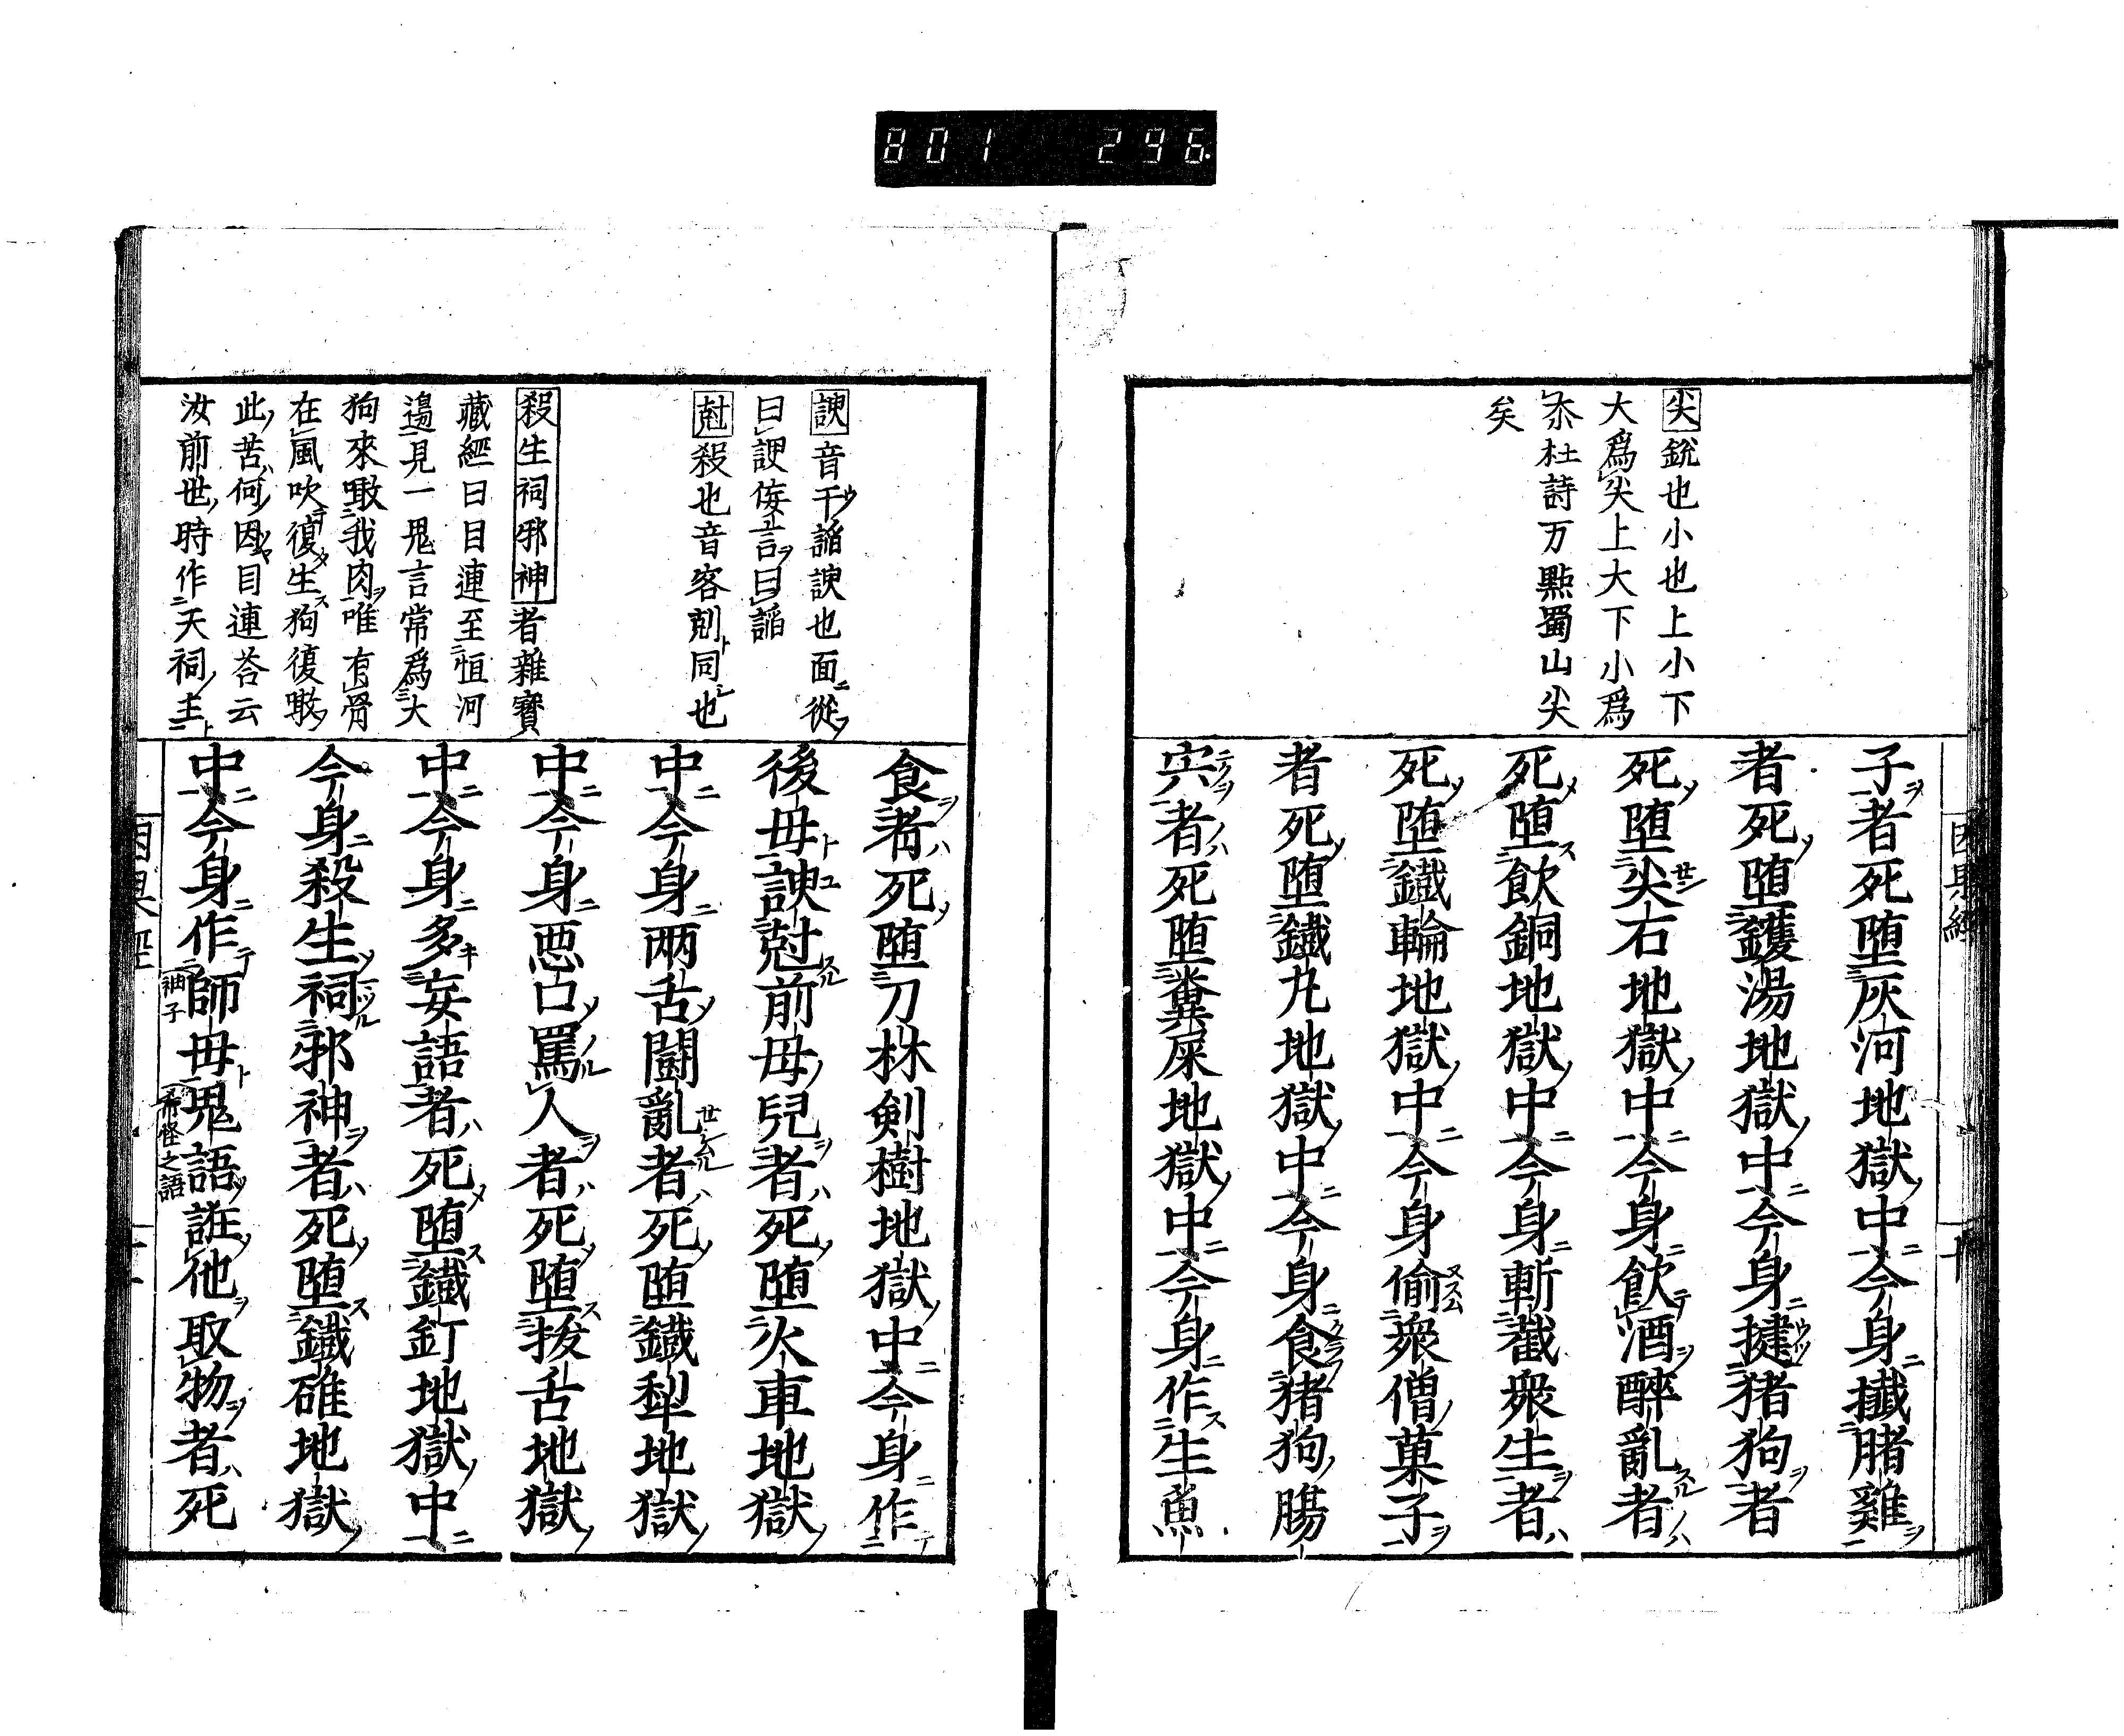 801 296
尖銳也小也上小下
大爲尖上大下小爲
杜詩万點蜀山尖
矣
因果經
十
子者死墮灰河地獄中今身撏腊雞
者死墮鑊湯地獄中今身揵猪狗者
死墮尖石地獄中今身飲酒醉亂者
死墮飲銅地獄中今身斬截衆生者
死墮鐵輪地獄中今身偷衆僧菓子
者死墮鐵丸地獄中今身食猪狗腸
宍者死墮糞屎地獄中今身作生魚
諛音于諂諛也面從
曰諛侫言曰諂
尅殺也音客剋同也
殺生祠邪神者雜寶
藏經曰目連至恒河
邉見一鬼言常爲大
狗來噉我肉唯有骨
在風吹復生狗復噉
此苦何因目連荅云
汝前世時作天祠主
食者死墮刀林剣樹地獄中今身作
後母諛尅前母兒者死墮火車地獄
中今身兩舌闘亂者死墮鐵犁地獄
中今身悪口罵人者死墮抜舌地獄
中今身多妄語者死墮鐵釘地獄中
今身殺生祠邪神者死墮鐵碓地獄
中今身作師母鬼語誑他取物者死
神子
希怪之語
因果經